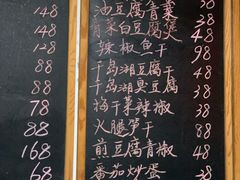 148 油豆腐青菜 38
148 青菜白豆腐煲 48
128 辣椒鱼干 98
88 千岛湖豆腐干 48
88 千岛湖臭豆腐 48
78 梅干菜辣椒 38
88 火腿笋干
168 煎豆腐青椒 48
68 番茄炒蛋 38